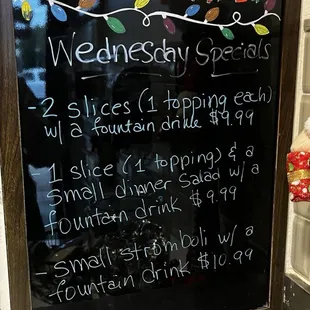 Wednesday Specials
- 2 slices (1 topping each)
w/ a fountain drink $9.99
- 1 slice (1 topping) & a
small dinner Salad w/ a
fountain drink $9.99
- small stromboli w/ a
fountain drink $10.99